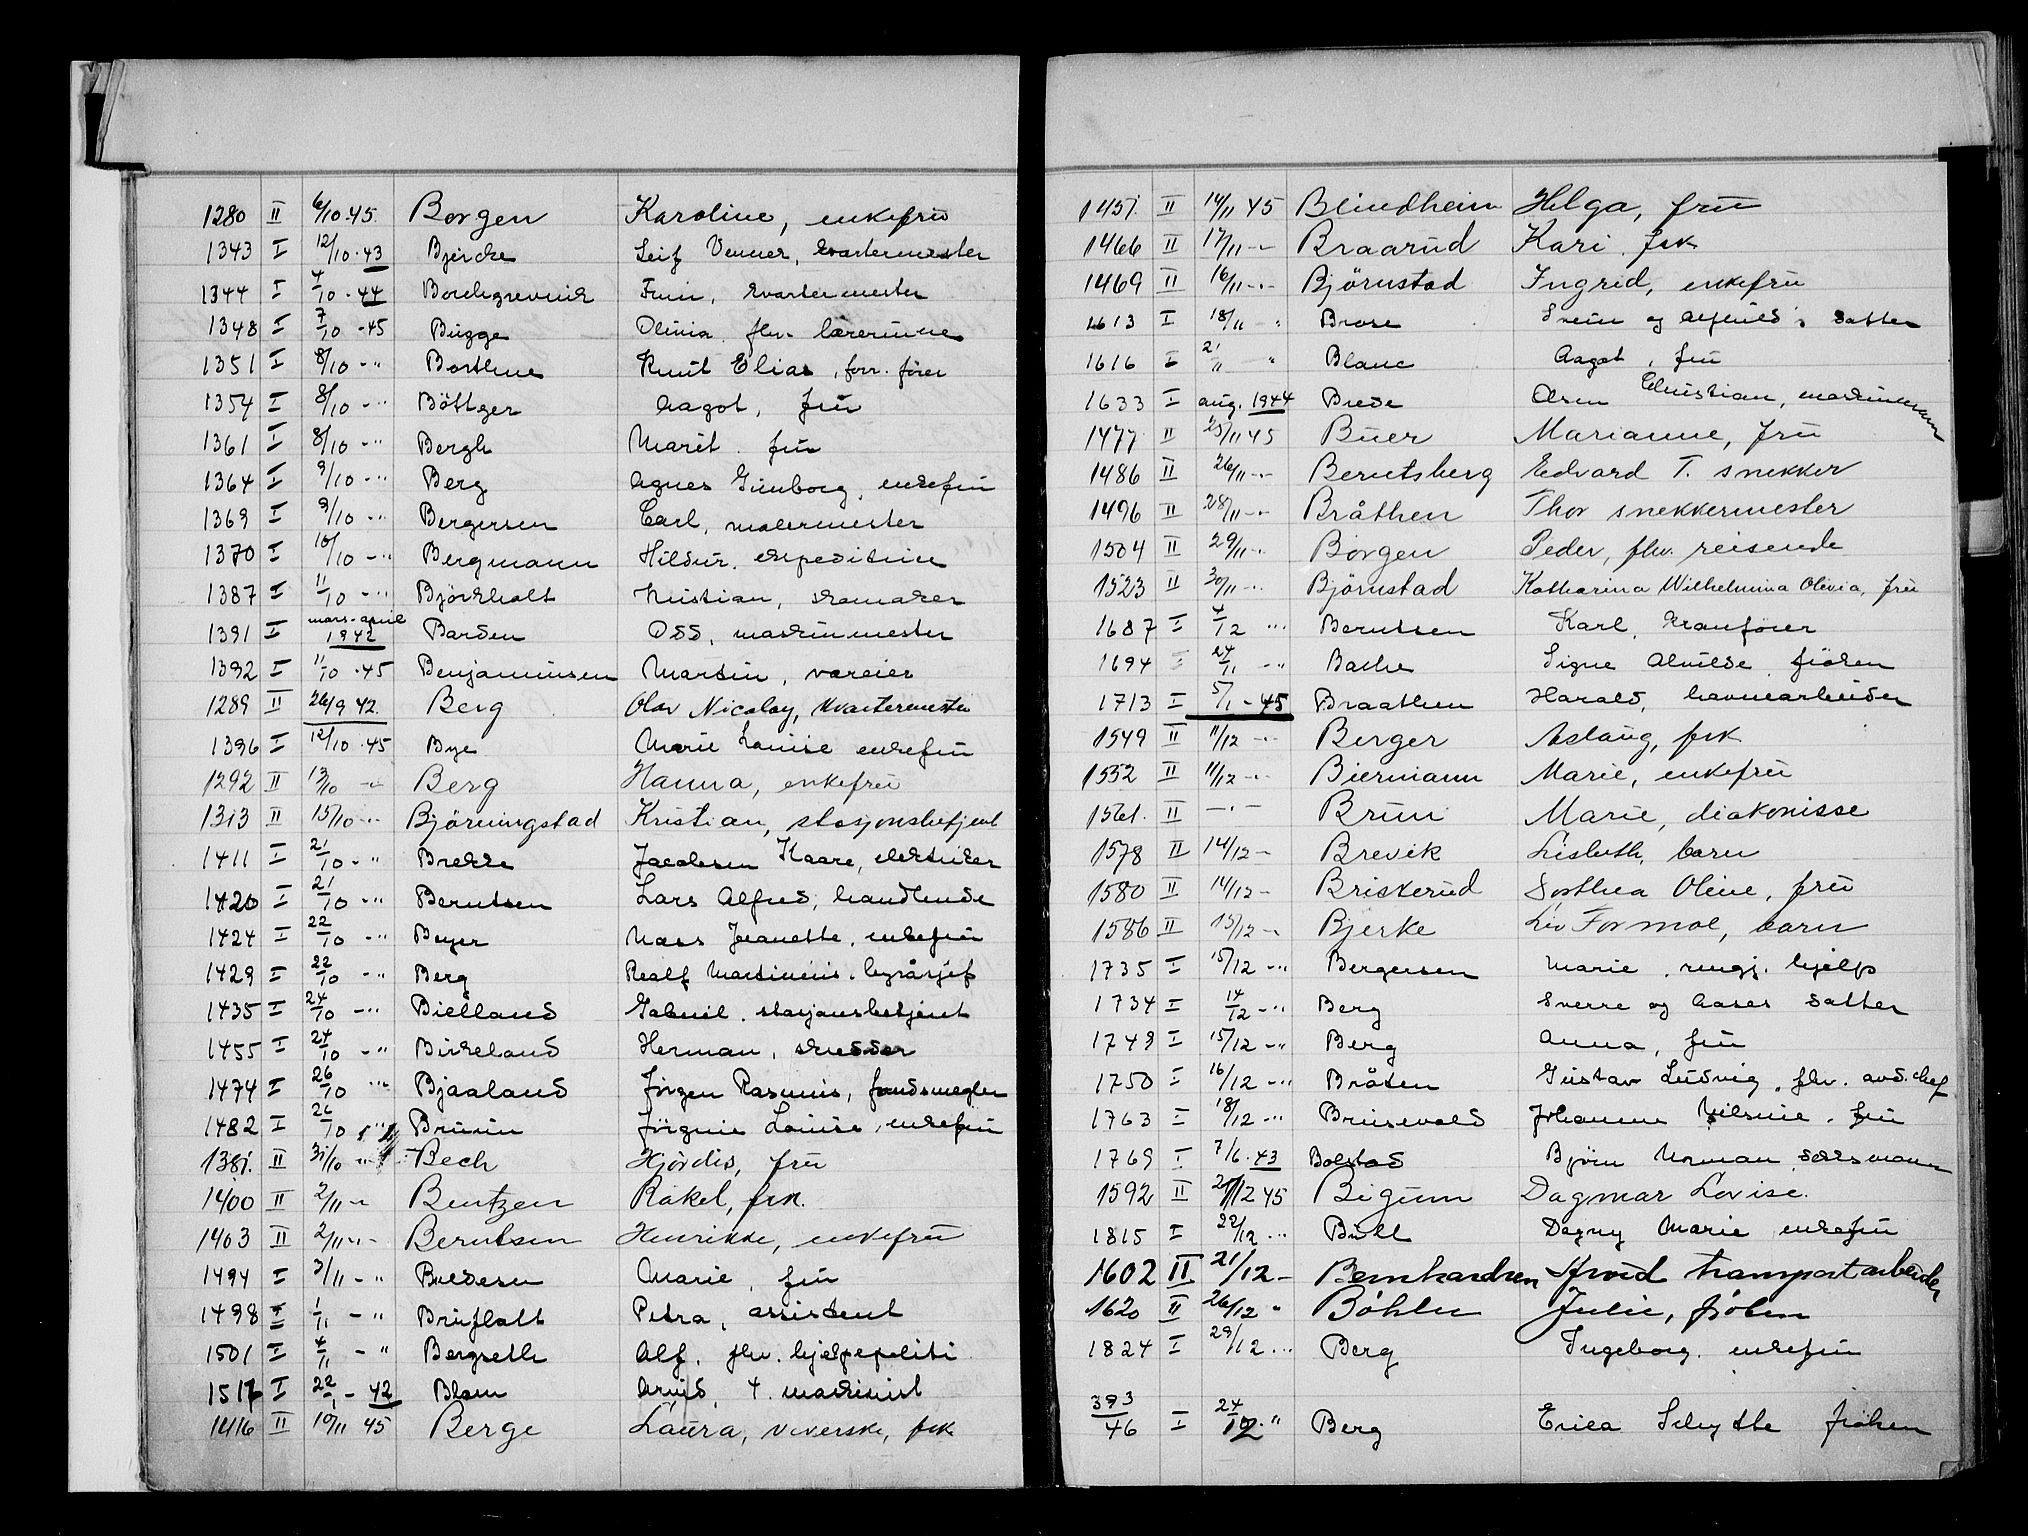 1280 II 6/10 45. Borgen Karoline, enkefru
1343 I 12/10 . 43 Bjercke Leif Venner, kvartermester
1344 I 4/10 . 44 Borchgrevink Finn, kvartermester
1348 I 7/10 . 45 Bugge Olivia flv. lærerinne
1351 I 8/10 - " Borthne Knut Elias, forr. fører
1354 I 8/10 - " Böttger Aagot, fru
1361 I 8/10 - " Bergh Marit. fru
1364 I 9/10 - " Berg Agnes Gunborg, enkefru
1369 I 9/10 - " Bergersen Carl, malermester
1370 I 10/10 - " Bergmann Hildur. ekspeditrise
1387 I 11/10 - " Björkholt Kristian, skomaker
1391 I mars-april 1942 Barden Odd, maskinmester
1392 I 11/10 . 45 Benjaminsen Martin, vareier
1289 II 26/9 42. Berg Olav Nicolay, kvartermester
1396 I 12/10 . 45 Bye Marie Louise enkefru
1292 II 13/10 - " Berg Hanna, enkefru
1313 II 15/10 - " Björningstad Kristian, stasjonsbetjent
1411 I 21/10 - " Brekke Jacobsen Kaare, elektriker
1420 I 21/10 - " Berntsen Lars Alfred, handlende
1424 I 22/10 - " Beyer Jeanette, enkefru
1429 I 22/10 - " Berg Realf Martinius. byråsjef
1435 I 24/10 - " Bielland Gabriel. stasjonsbetjent
1455 I 24/10 - " Birkeland Herman, skredder
1474 I 26/10 " Bjaaland Jörgen Rasmus, fondsmegler
1482 I 26/10 " Brunin Jörgine Louise, enkefru
1381. II 31/10 " Bech Hjördis, fru
1400 II 2/11 - Bentzen Rakel, frk.
1403 II 2/11 - - Berntsen Henrikke, enkefru
1494 I 3/11 - " Bredesen Marie, fru
1498 I 1/11 - " Bruflatt Petra, assistent
1501 I 4/11 - " Bergseth Alf. flv. hjelpepoliti
1517 I 22/1 - 42 Blom Arvid, 4. maskinist
1416 II 10/11 45 Berge Laura, veverske, frk
1451. II 14/11 45 Blindheim Helga, fru
1466 II 17/11 - - Braarud Kari. frk
1469 II 16/11 - - Bjørnstad Ingrid, enkefru
1613 I 18/11 " Brose Svein og datter
1616 I 21/11 " Blanc Aagot, fru
1633 I aug. 1944 Brede Olsen Christian, maskinmann
1477 II 25/11 45 Buer Marianne, fru
1486 II 26/11 - - Berntsberg Edvard T. snekker
1496 II 28/11 - - Bråthen Thor snekkermester
1504 II 29/11 - - Borgen Peder, flv. reisende
1523 II 30/11 - - Bjørnstad Katharina Wilhelmina Olivia, fru
1687 I 4/12 " Berntsen Karl, kranfører
1694 I 24/11 - " Bache Signe Alvilde fröken
1713 I 5/1 - 45 Braathen Harald, havnearbeider
1549 II 11/12 - - Berger Aslaug, frk
1552 II 11/12 - - Biermann Marie, enkefru
1561. II - " - Brun Marie, diakonisse
1578 II 14/12 - Brevik Lisbeth, barn
1580 II 14/12 - Briskerud Dorthea Oline, fru
1586 II 15/12 - Bjerke Liv Formoe, barn
1735 I 15/12 - " Bergersen Marie, rengj. hjelp
1734 I 14/12 - " Berg Sverre og Aases datter
1749 I 15/12 - " Berg Anna, fru
1750 I 16/12 - " Bråten Gustav Ludvig, flv. avd. chef
1763 I 18/12 - " Brusevold Johanne fru
1769 I 7/6 . 43 Bolstad Björn Norman, dekksmann
1592 II 21/12 45 Bigum Dagmar Lovise.
1815 I 22/12 " Bull Dagny Marie enkefru
1602 II 21/12 - Bernhardsen Arvid transportarbeider
1620 II 26/12 " Böhler Julie, fröken
1824 I 29/12 " Berg Ingeborg. enkefru
393/46 I 24/12 " Berg Erica Schytte fröken